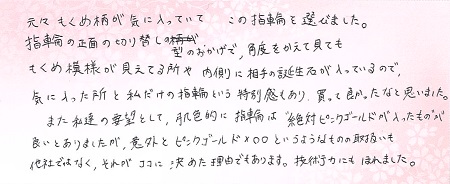 元々 もくめ柄が気に入っていて この指輪を選びました。
指輪の正面の切り替しの型のおかげで、角度をかえて見ても
もくめ模様が見えてる所や 内側に相手の誕生石が入っているので、
気に入った所と私だけの指輪という特別感もあり、買って良かったなと思いました。
また私達の要望として、肌色的に指輪は"絶対ピンクゴールドが入ったもの"が
良いとありましたが、意外とピンクゴールド×○○というようなものの取扱いも
他社ではなく、それがココに決めた理由でもあります。技術力にもほれました。